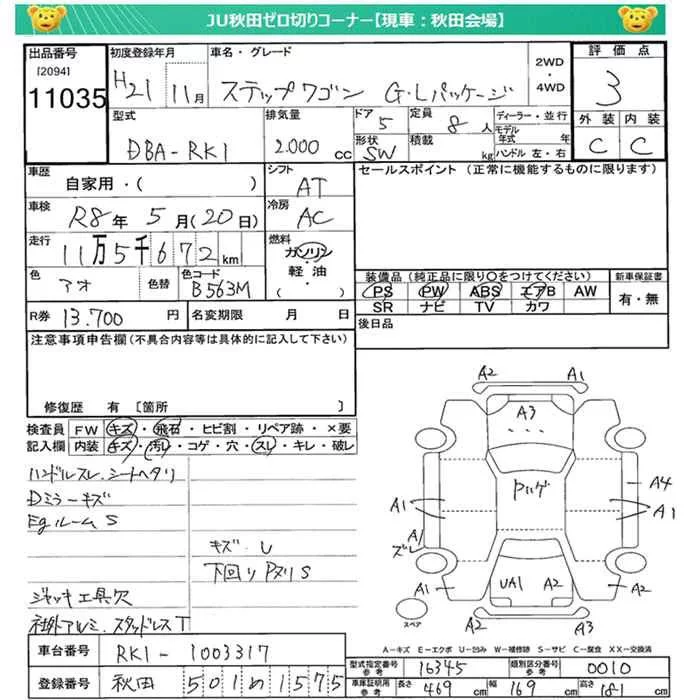 JU秋田ゼロ切りコーナー【現車：秋田会場】
出品番号 [2094] 11035
初度登録年月 H21 11月
車名・グレード ステップワゴン G・Lパッケージ
2WD・4WD
評価点 3
外装 C 内装 C
型式 DBA-RK1
排気量 2.000 cc
ドア 5 形状 SW
定員 8人 積載 kg
ディーラー・並行
モデル年式 年
ハンドル 左・右
車歴 自家用・( )
シフト AT
セールスポイント（正常に機能するものに限ります）
車検 R8年 5月(20日)
冷房 AC
走行 11万5千672km
燃料 ガソリン・軽油・( )
色 アオ 色替 色コード B563M
装備品（純正品に限り○をつけてください） 新車保証書
PS PW ABS エアB AW 有・無
SR ナビ TV カワ
R券 13.700円 名変期限 月 日
後日品
注意事項申告欄（不具合内容等は具体的に記入して下さい）
修復歴 有 [箇所 ]
検査員記入欄
FW キズ・飛石・ヒビ割・リペア跡・×要
内装 キズ・汚レ・コゲ・穴・スレ・キレ・破レ
ハンドルスレ.シートヘタリ
Dミラーキズ
Egルーム S
キズ・U
下回り Pヌリ S
ジャッキ工具欠
社外アルミ.スタッドレスT
A2 A1
A3
Pハゲ
A4
A1 A1
A1
ズレ
A1 UA1 A2 A2
スペア
A2 A3
A-キズ E-エクボ U-凹み W-補修跡 S-サビ C-腐食 XX-交換済
車台番号 RK1-1003317
型式指定番号 参考 16345 類別区分番号 参考 0010
登録番号 秋田 501 め 1575
車庫証明用 参考 長さ 469cm 幅 169cm 高さ 181cm